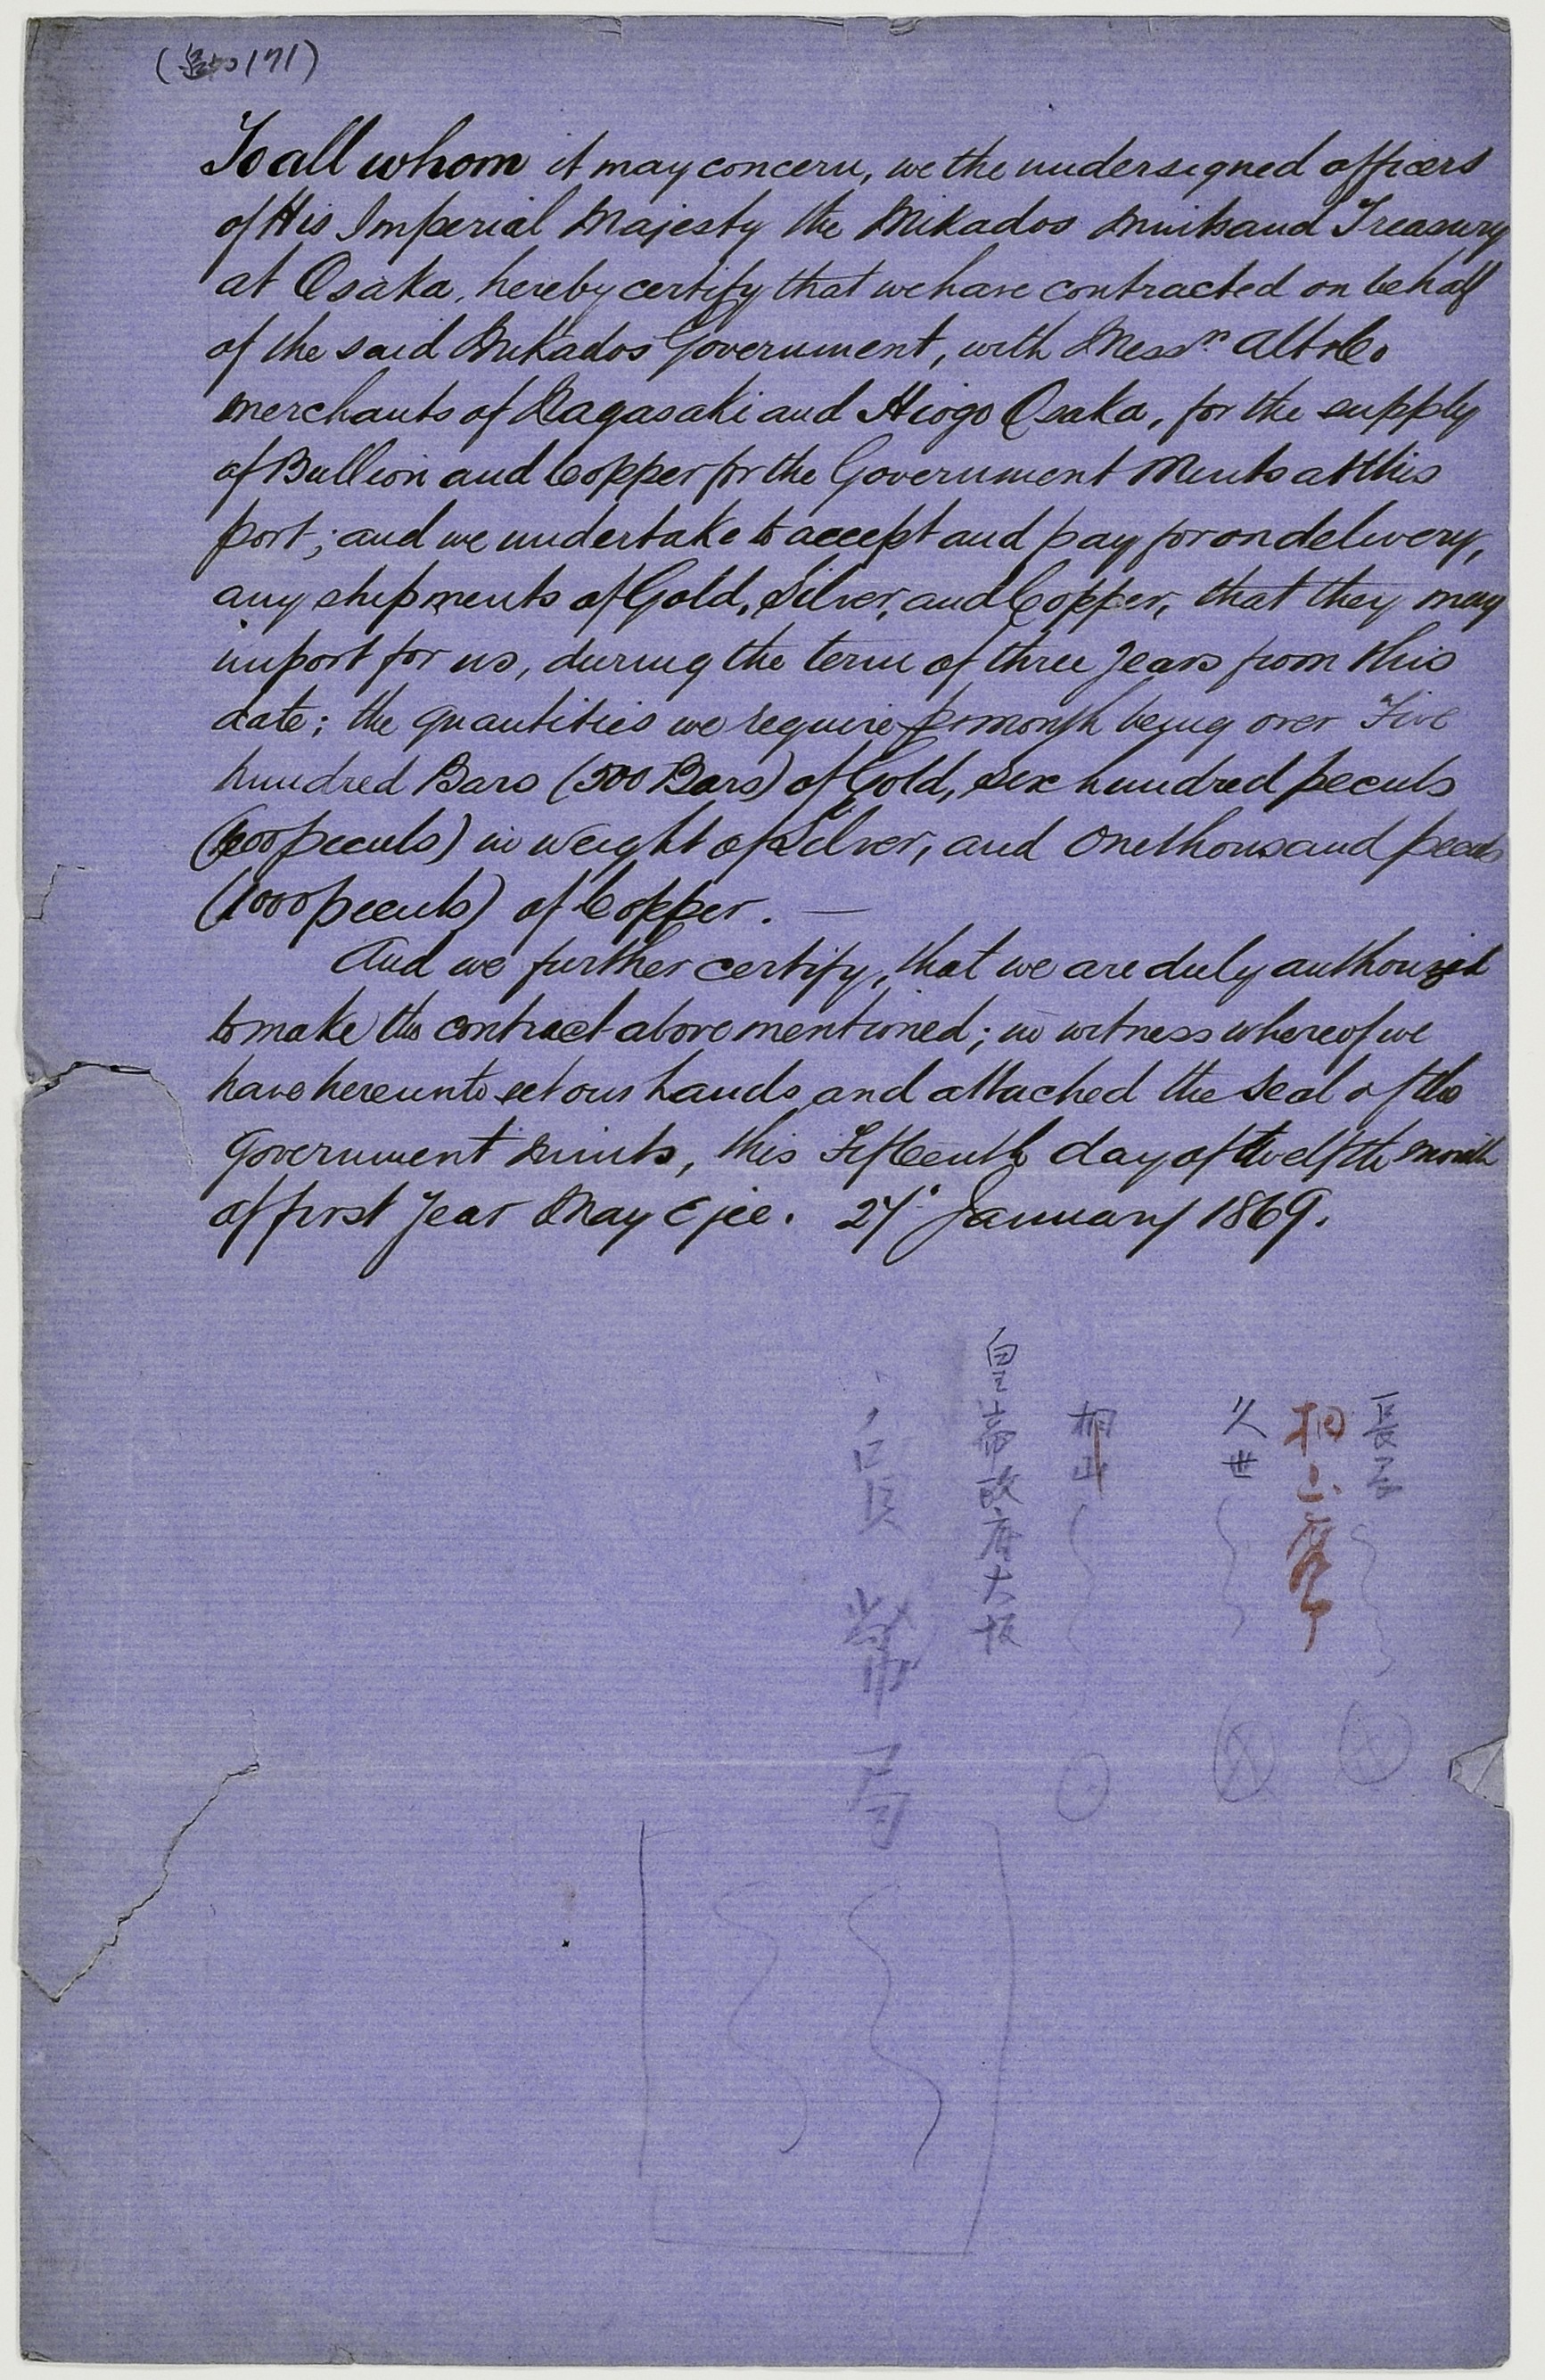 171)
To all whom it may concern, we the undersigned officers
of His Imperial Majesty the Mikados Mints and Treasury
at Osaka, hereby certify that we have contracted on behalf
of the said Mikados Government, with Messrs Alt & Co
merchants of Nagasaki and Hiogo Osaka, for the supply
of Bullion and Copper for the Government Mints at this
port; and we undertake to accept and pay for on delivery,
any shipments of Gold, Silver, and Copper, that they may
import for us, during the term of three Years from this
date; the quantities we require pr month being over Five
hundred Bars (500 Bars) of Gold, Six hundred peculs
(600 peculs) in weight of Silver, and One thousand peculs
(1000 peculs) of Copper. —
And we further certify, that we are duly authorized
to make the contract above mentioned; in witness whereof we
have hereunto set our hands and attached the Seal of the
Government Mints, this Fifteenth day of twelfth month
of first Year May Ejee. 27. January 1869.
長谷
桐山
久世
桐山
皇帝政府大坂
貨幣局